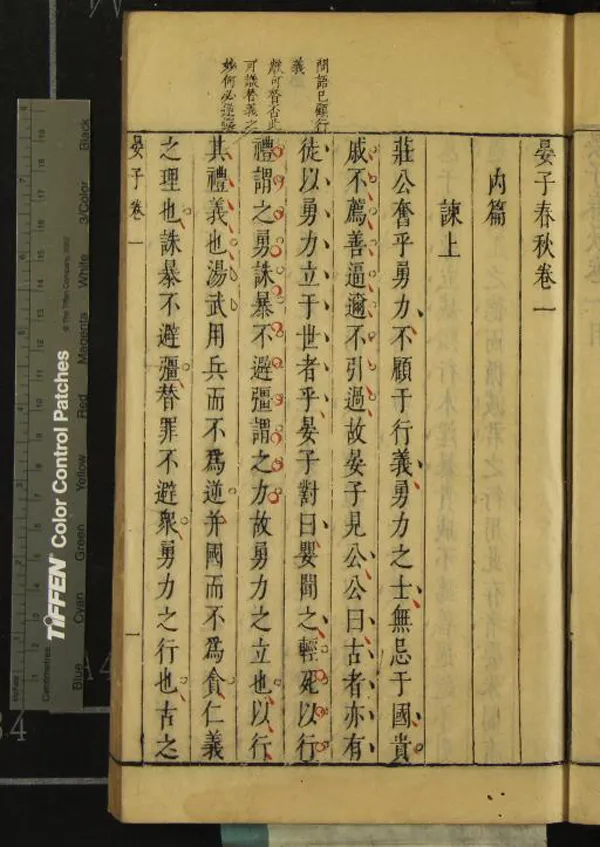 晏子春秋卷一
內篇
諫上
莊公奮乎勇力不顧于行義勇力之士無忌于國貴
戚不薦善逼邇不引過故晏子見公公曰古者亦有
徒以勇力立于世者乎晏子對曰嬰聞之輕死以行
禮謂之勇誅暴不避彊謂之力故勇力之立也以行
其禮義也湯武用兵而不爲逆并國而不爲貪仁義
之理也誅暴不避彊替罪不避衆勇力之行也古之
晏子卷一
一
開語已顧行
義
可議替義之
妙何必逆
TIFFEN Color Control Patches
© The Tiffen Company, 2007
Centimetres
Blue
Cyan
Green
Yellow
Red
Magenta
White
3/Color
Black
A4